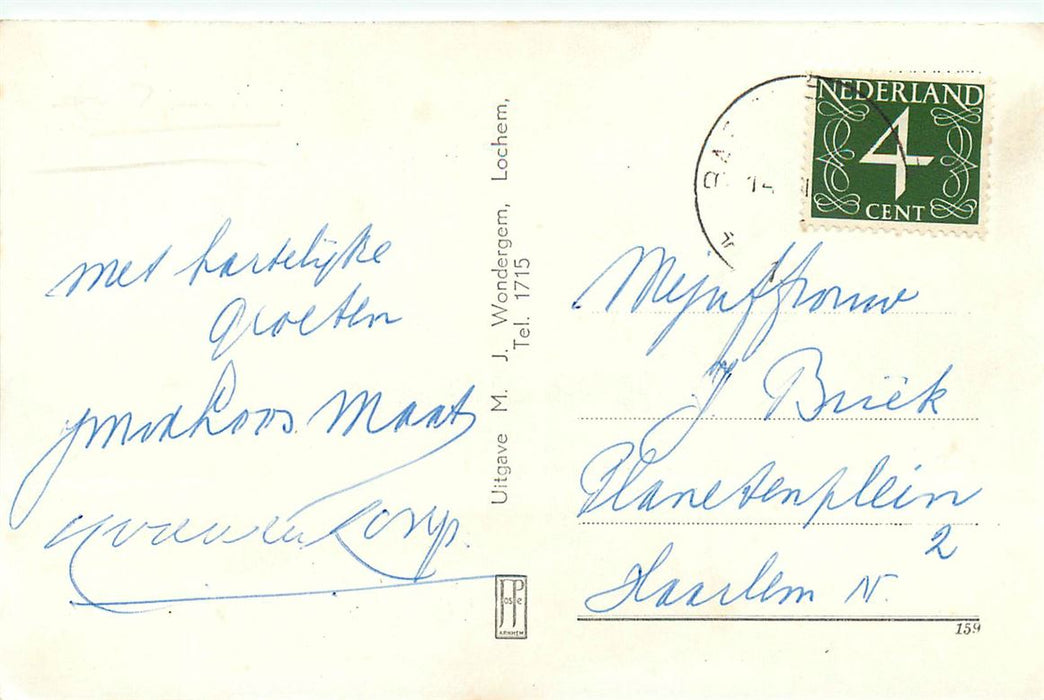 met hartelijke
groeten
Maat
Uitgave M. J. Wondergem, Lochem,
Tel. 1715
NEDERLAND
4
CENT
Mejuffrouw
J Briëk
Planetenplein
2
Haarlem N.
JosPé
ARNHEM
159